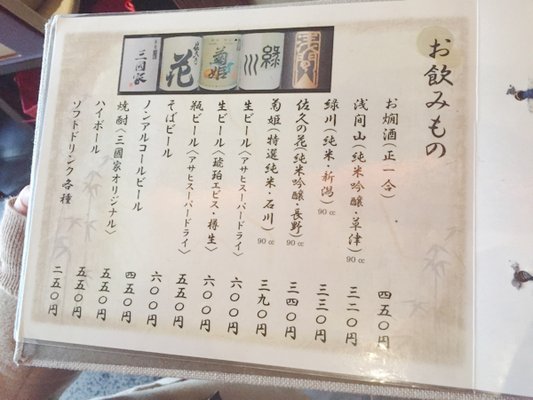 お飲みもの
お燗酒(正一合) 四五〇円
浅间山(純米吟醸・草津) 90 cc 三二〇円
緑川(純米・新潟) 90 cc 三三〇円
佐久の花(純米吟醸・長野) 90 cc 三四〇円
菊姫(特選純米・石川) 90 cc 三九〇円
生ビール〈アサヒスーパードライ〉 六〇〇円
生ビール〈琥珀エビス・樽生〉 六〇〇円
瓶ビール〈アサヒスーパードライ〉 五五〇円
そばビール 六〇〇円
ノンアルコールビール 四五〇円
焼酎〈三國家オリジナル〉 五五〇円
ハイボール 五五〇円
ソフトドリンク各種 二五〇円
三國家
花
菊姫
緑川